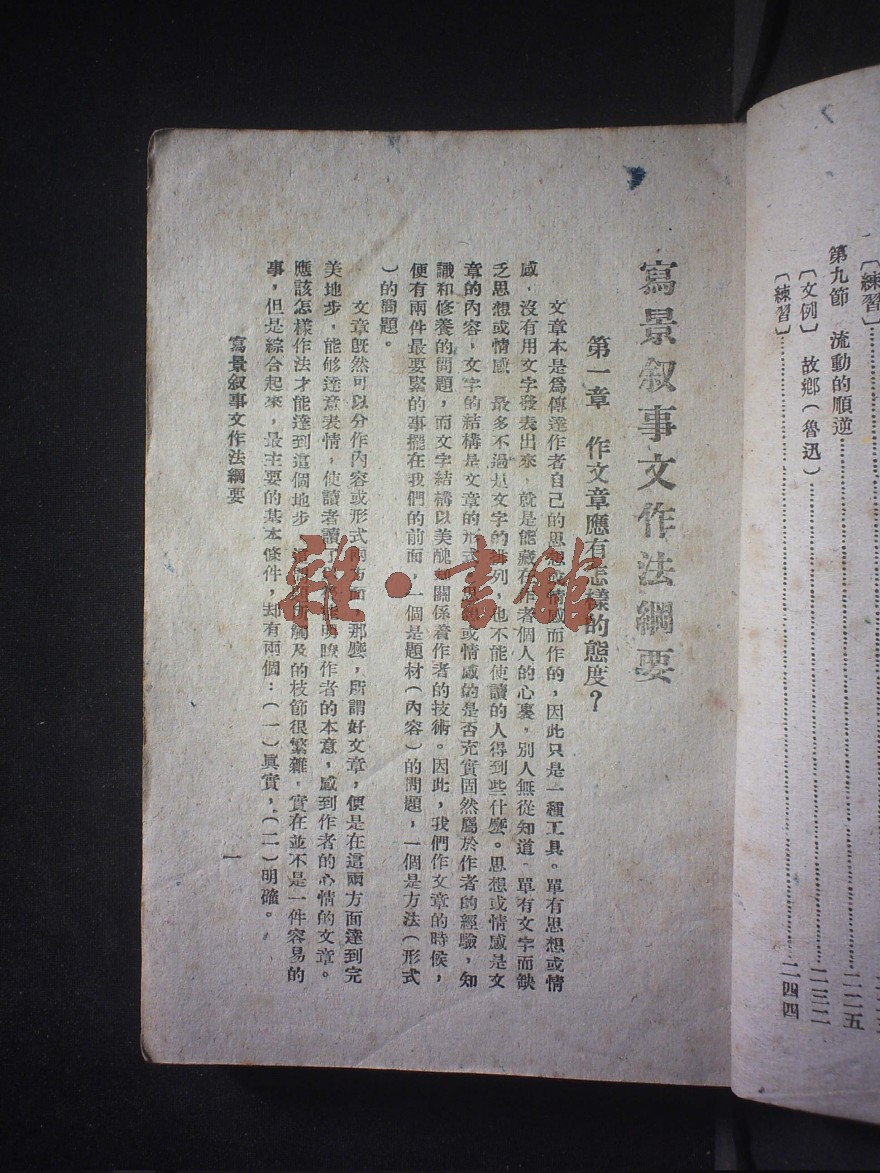 〔練習〕
第九節　流動的順逆　二二五
〔文例〕　故鄉（魯迅）　二三二
〔練習〕　二四四
寫景叙事文作法綱要
第一章　作文章應有怎樣的態度？
文章本是爲傳達作者自己的思想或情感而作的，因此只是一種工具。單有思想或情
感，沒有用文字發表出來，就是能藏在作者個人的心裏，別人無從知道。單有文字而缺
乏思想或情感，最多不過是文字的排列，也不能使讀的人得到些什麽。思想或情感是文
章的內容，文字的結構是文章的形式。思想或情感的是否充實固然屬於作者的經驗，知
識和修養的問題，而文字結構以美醜却關係着作者的技術。因此，我們作文章的時候，
便有兩件最要緊的事擺在我們的前面，一個是題材（內容）的問題，一個是方法（形式
）的問題。
文章旣然可以分作內容或形式兩方面，那麽，所謂好文章，便是在這兩方面達到完
美地步，能够達意表情，使讀者讀了明瞭作者的本意，感到作者的心情的文章。
應該怎樣作法才能達到這個地步，所觸及的枝節很繁雜，實在並不是一件容易的
事，但是綜合起來，最主要的基本條件，却有兩個：（一）眞實，（二）明確。
寫景叙事文作法綱要
一
雜·書館